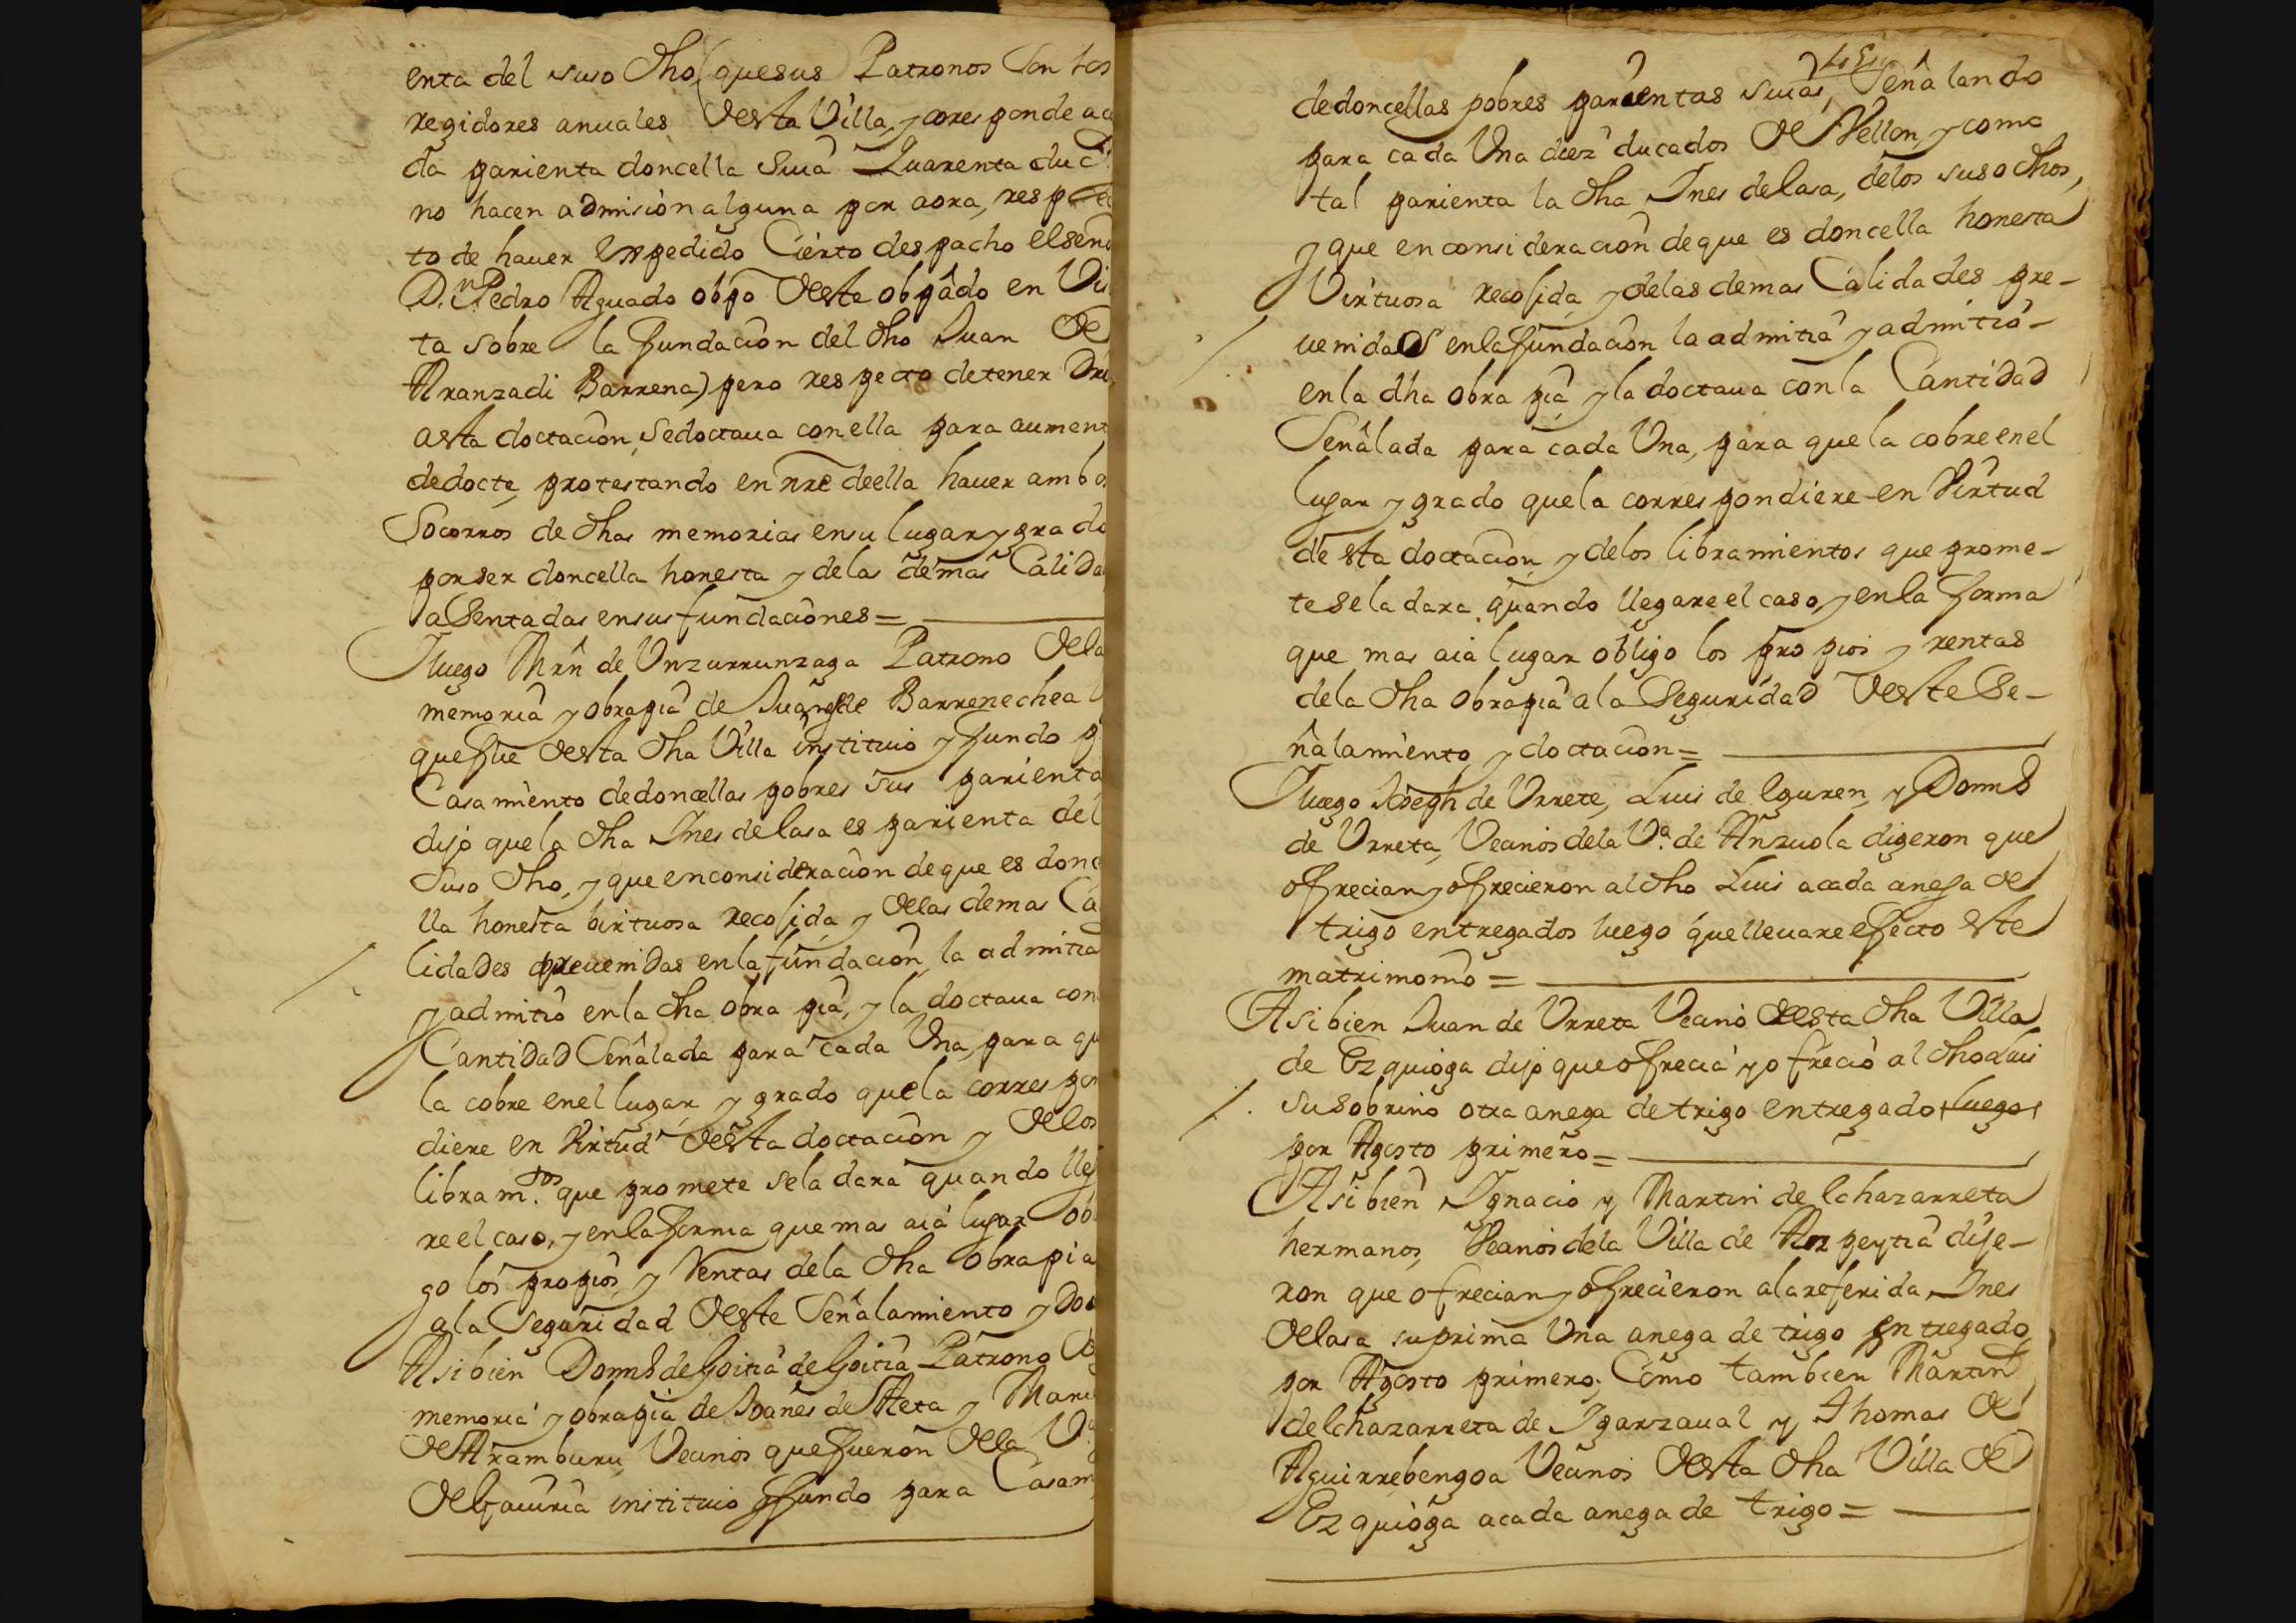 enta del suso dho (que sus Patronos son los
regidores anuales desta Villa, y coresponde a ca
da parienta doncella suia Quarenta duc.
no hacen admision alguna por aora, respec
to de hauer expedido Cierto despacho el señ
D.n Pedro Aguado obpo deste obpâdo en Vi
ta sobre la fundacion del dho Juan de
Aranzadi Barrena) pero respecto de tener Dr
a esta doctacion, se doctaua con ella para aument
de docte, protestando en nre de ella hauer ambo
Socorros de dhas memorias en su lugar y grado
por ser doncella honesta y de las demas Calida
asentadas en sus fundaciones =
Y luego Mrn de Unzurrunzaga Patrono de la
memoria y obra pia de Juanes de Barrenechea
que fue desta dha Villa instituio y fundo p
Casamiento de doncellas pobres sus parienta
dijo que la dha Ines de lasa es parienta del
suso dho, y que en consideracion de que es donc
lla honesta birtuosa recojida, y de las demas Ca
lidades preuenidas en la fundacion, la admitia
y admitio en la dha obra pia, y la doctaua con
Cantidad Señalada para cada Una, para qu
la cobre en el lugar, y grado que la correspon
diere en Virtud desta doctacion y de los
libram.tos que promete se la dara quando lleg
re el caso, y en la forma que mas aia lugar ob
go los propios, y Rentas de la dha obra pia
a la Seguridad deste Señalamiento y doc
Asi bien Doms de Goitia de Goitia Patrono d
memoria y obra pia de Joanes de Aeta y Mari
de Aramburu, Vecinos que fueron de la V.a
de Gauiria instituio y fundo para Casam
de doncellas pobres parientas suias, Señalando
para cada Una diez ducados de Vellon, y como
tal parienta la dha Ines de lasa, de los suso dhos,
y que en consideracion de que es doncella honesta
Virtuosa recojida, y de las demas Calidades pre-
uenidas en la fundacion la admitia y admitio
en la dha obra pia y la doctaua con la Cantidad
Señalada para cada Una, para que la cobre en el
lugar y grado que la correspondiere en Virtud
de sta doctacion, y de los libramientos que prome-
te se la dara quando llegare el caso, y en la forma
que mas aia lugar obligo los propios y rentas
de la dha obra pia a la Seguridad deste Se-
ñalamiento, y doctacion =
Y luego Joseph de Urrete, Luis de Eguren, y Doms
de Urreta, Vecinos de la V.a de Anzuola digeron que
ofrecian y ofrecieron al dho Luis a cada anega de
trigo entregados luego que lleuare efecto este
matrimonio =
Asi bien Juan de Urreta Vecino desta dha Villa
de Ezquioga dijo que ofrecia y ofrecio al dho Luis
su sobrino otra anega de trigo entregado luego
por Agosto primero =
Asi bien Ignacio y Martin de Echazarreta
hermanos, Vecinos de la Villa de Azpeytia dije-
ron que ofrecian y ofrecieron a la referida Ines
de lasa su prima Una anega de trigo entregado
por Agosto primero; Como tambien Martin
de Echazarreta de Igarzaual y Thomas de
Aguirrebengoa Vecinos desta dha Villa de
Ezquioga a cada anega de trigo =